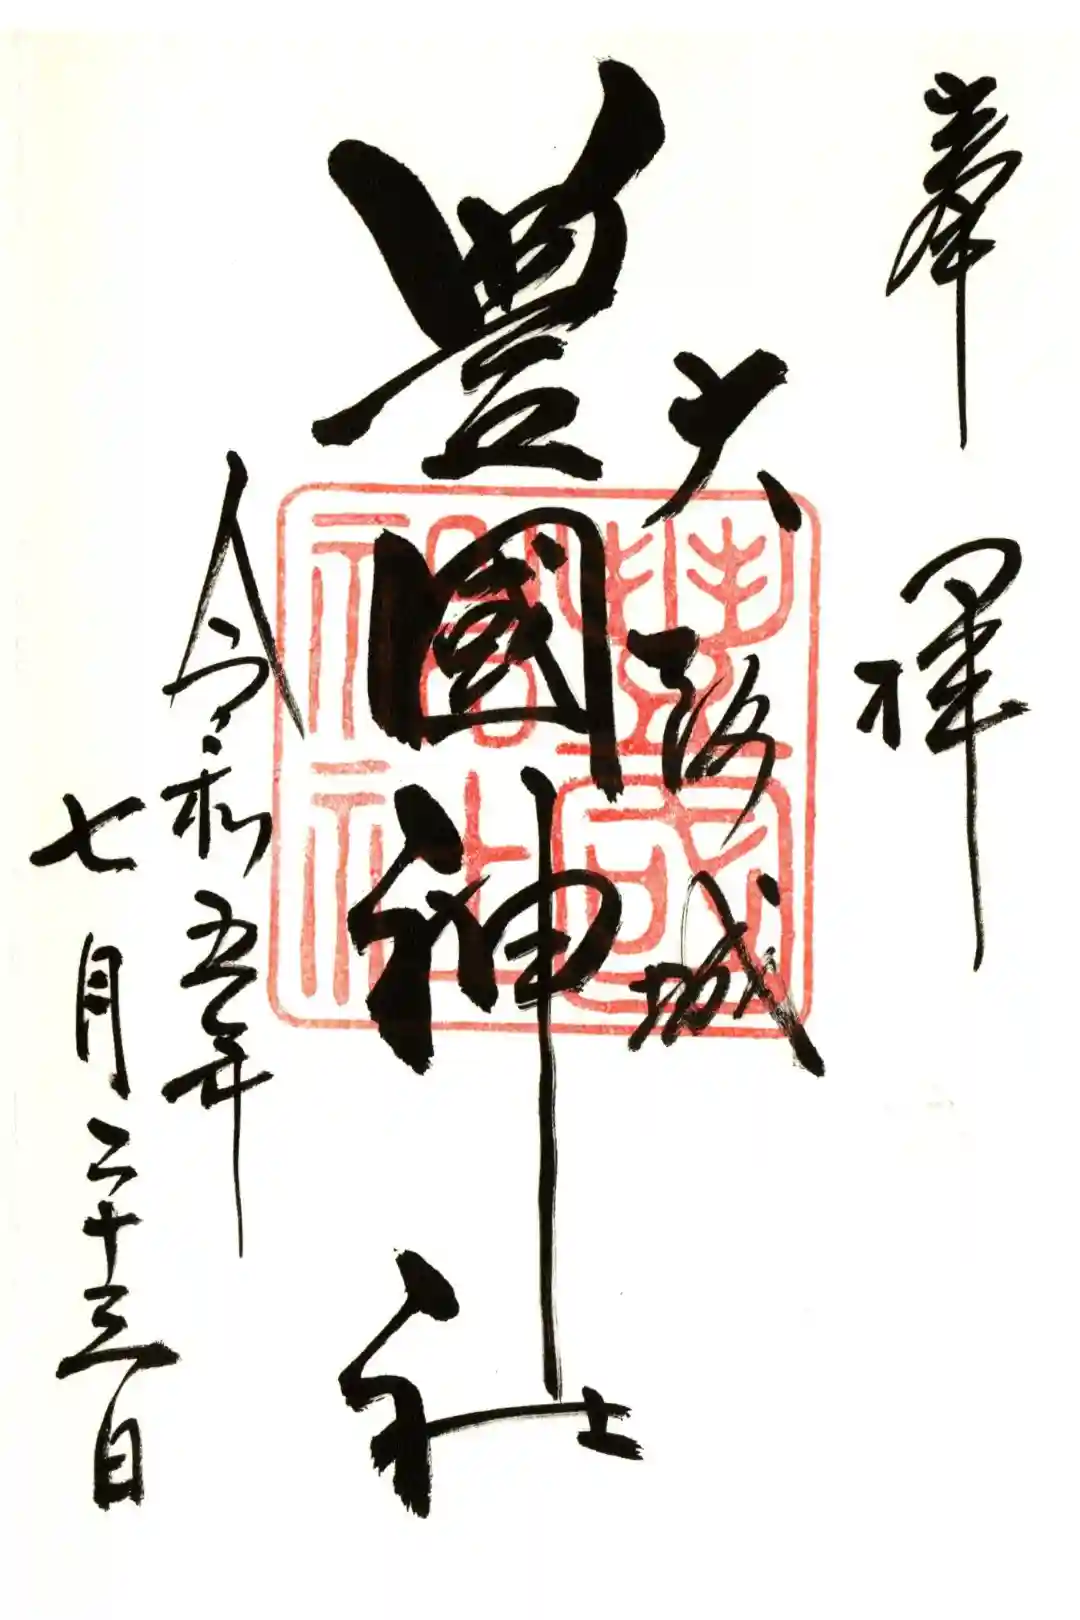 奉拝
大阪城
豊國神社
令和五年
七月二十三日
豊國神社